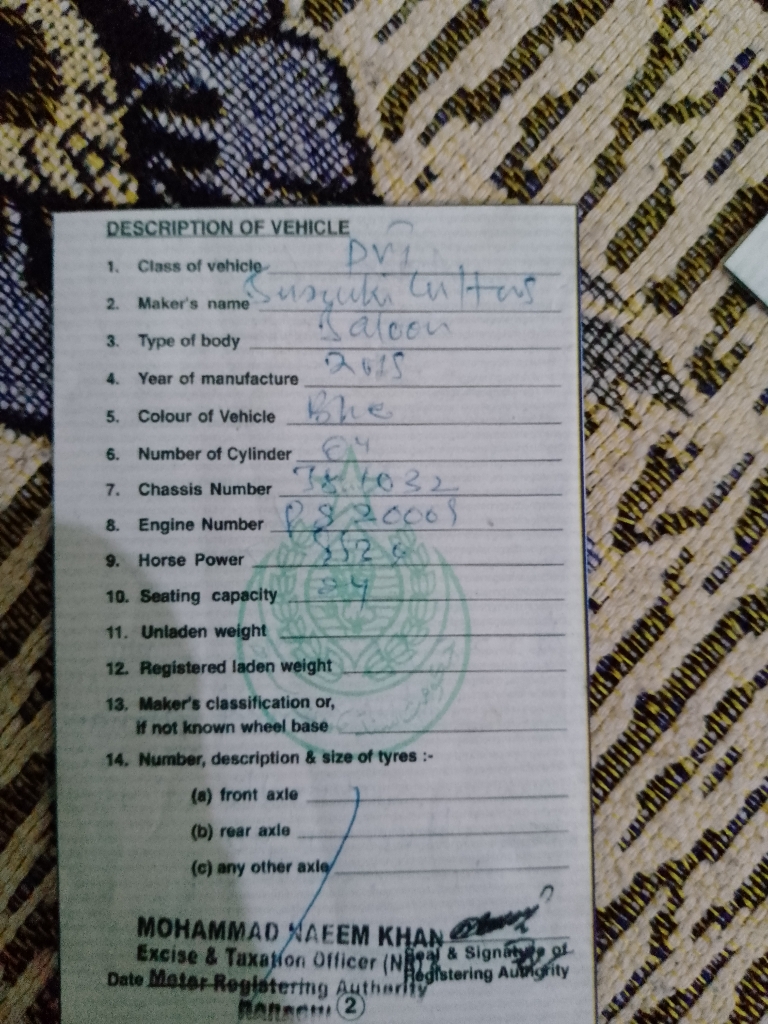 DESCRIPTION OF VEHICLE
1. Class of vehicle
2. Maker's name Suzuki Cultus
3. Type of body Saloon
4. Year of manufacture 2015
5. Colour of Vehicle Blue
6. Number of Cylinder 04
7. Chassis Number
8. Engine Number
9. Horse Power
10. Seating capacity 04
11. Unladen weight
12. Registered laden weight
13. Maker's classification or,
if not known wheel base
14. Number, description & size of tyres :-
(a) front axle
(b) rear axle
(c) any other axle
MOHAMMAD NAEEM KHAN
Excise & Taxation Officer Seal & Signature of
Date Motor Registering Authority Registering Authority
KARACHI 2